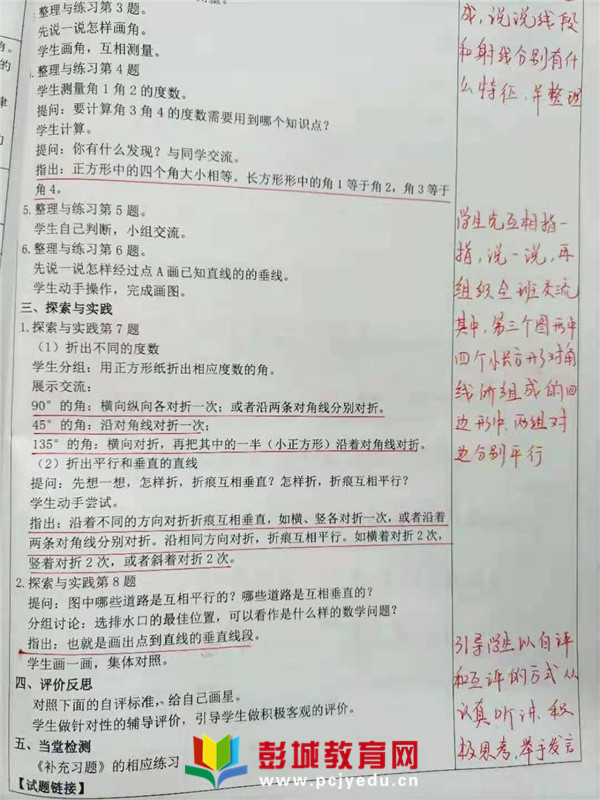 整理与练习第 3 题。
先说一说怎样画角。
学生画角，互相测量。
整理与练习第 4 题
学生测量角 1 角 2 的度数。
提问：要计算角 3 角 4 的度数需要用到哪个知识点？
学生计算。
提问：你有什么发现？与同学交流。
指出：正方形中的四个角大小相等。长方形形中的角 1 等于角 2，角 3 等于
角 4。
5.整理与练习第 5 题。
学生自己判断，小组交流。
6.整理与练习第 6 题。
先说一说怎样经过点 A 画已知直线的的垂线。
学生动手操作，完成画图。
三、探索与实践
1.探索与实践第 7 题
（1）折出不同的度数
学生分组：用正方形纸折出相应度数的角。
展示交流：
90°的角：横向纵向各对折一次；或者沿两条对角线分别对折。
45°的角：沿对角线对折一次。
135°的角：横向对折，再把其中的一半（小正方形）沿着对角线对折。
（2）折出平行和垂直的直线
提问：先想一想，怎样折，折痕互相垂直？怎样折，折痕互相平行？
学生动手尝试。
指出：沿着不同的方向对折折痕互相垂直，如横、竖各对折一次，或者沿着
两条对角线分别对折。沿相同方向对折，折痕互相平行。如横着对折 2 次，
竖着对折 2 次，或者斜着对折 2 次。
2.探索与实践第 8 题
提问：图中哪些道路是互相平行的？哪些道路是互相垂直的？
分组讨论：选排水口的最佳位置，可以看作是什么样的数学问题？
指出：也就是画出点到直线的垂直线段。
学生画一画，集体对照。
四、评价反思
对照下面的自评标准，给自己画星。
学生做针对性的辅导评价，引导学生做积极客观的评价。
五、当堂检测
《补充习题》的相应练习
【试题链接】
成，说说线段
和射线分别有什
么特征，并整理
学生先互相指一
指，说一说，再
组织全班交流
其中，第三个图形中
四个小长方形对角
线所组成的四
边形中，两组对
边分别平行
引导学生以自评
和互评的方式从
认真听讲、积
极思考，举手发言
彭城教育网
www.pcjyedu.cn